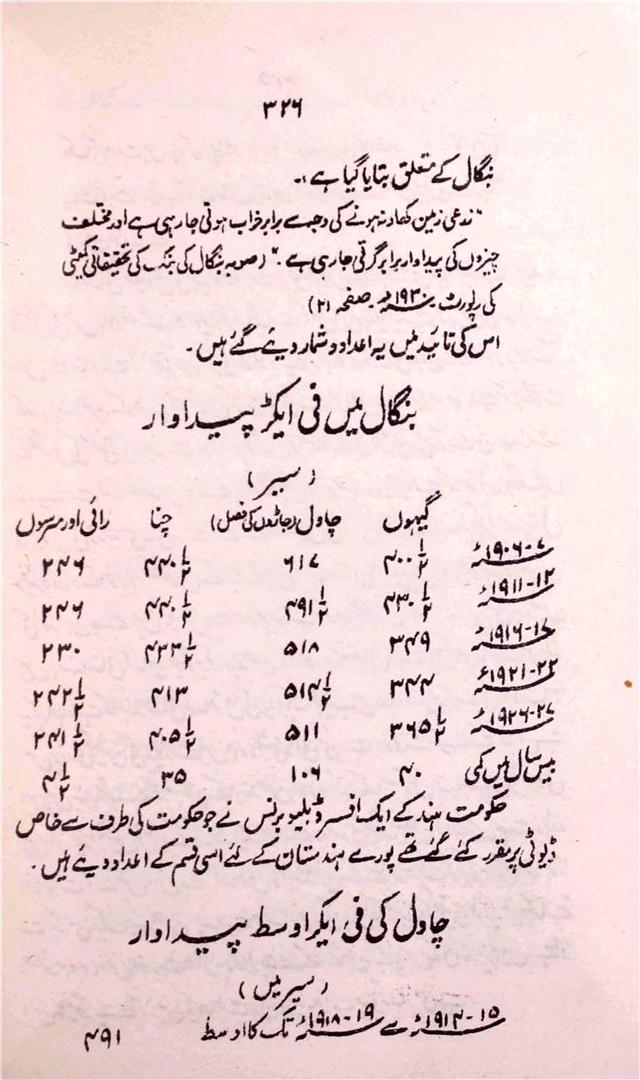 ۳۲۶
بنگال کے متعلق بتایا گیا ہے :۔
"زرعی زمین کھاد نہ ہونے کی وجہ سے برابر خراب ہوتی جا رہی ہے اور مختلف
چیزوں کی پیداوار برابر گرتی جا رہی ہے ۔" (صوبہ بنگال کی بنک کی تحقیقاتی کمیٹی
کی رپورٹ ۔ ۱۹۳۰ء ۔ صفحہ ۲۱)
اس کی تائید میں یہ اعداد و شمار دیئے گئے ہیں ۔
بنگال میں فی ایکڑ پیداوار
(سیر)
گیہوں چاول (جاڑوں کی فصل) چنا رائی اور سرسوں
۱۹۰۶-۷ء ۴۰۰½ ۶۱۷ ۴۴۰½ ۲۴۶
۱۹۱۱-۱۲ء ۴۳۰½ ۴۹۱½ ۴۴۰½ ۲۴۶
۱۹۱۶-۱۷ء ۳۴۹ ۵۱۸ ۴۳۳½ ۲۳۰
۱۹۲۱-۲۲ء ۳۴۴ ۵۱۴½ ۴۱۳ ۲۴۲½
۱۹۲۶-۲۷ء ۳۶۵½ ۵۱۱ ۴۰۵½ ۲۴۱½
بیس سال میں کمی ۴۰ ۱۰۶ ۳۵ ۴½
حکومت ہند کے ایک افسر ڈبلیو برنس نے جو حکومت کی طرف سے خاص
ڈیوٹی پر مقرر کئے گئے تھے پورے ہندستان کے لئے اسی قسم کے اعداد دیئے ہیں ۔
چاول کی فی ایکڑ اوسط پیداوار
(سیر میں)
۱۹۱۴-۱۵ء سے ۱۹۱۸-۱۹ء تک کا اوسط ۴۹۱